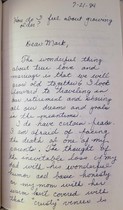 7-21-94
How do I feel about growing
older?
Dear Mark,
The wonderful thing
about true love and
marriage is that we will
grow old together. I look
forward to traveling in
our retirement and having
all our dreams and goals
in the
I do have certain fears
I am afraid of facing
the death of one of my
parents. The thought of
the inevitable loss of my
dad with his wonderful
humor and base honesty
or my mom with her
covered with
that "crusty" veneer is